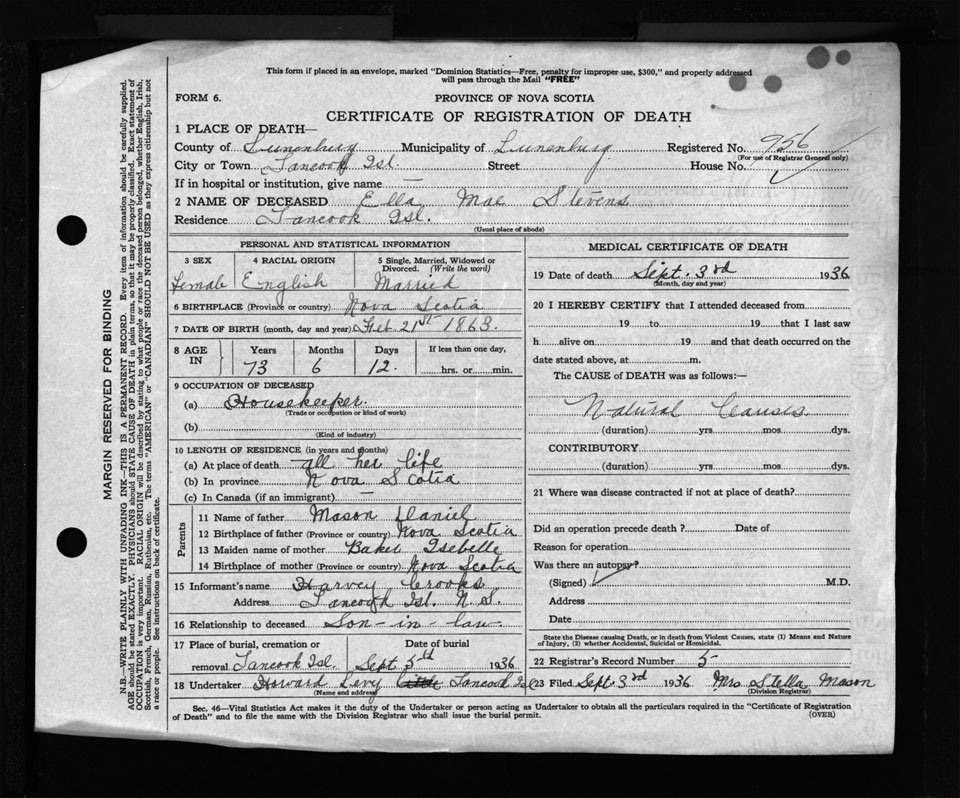 This form if placed in an envelope, marked "Dominion Statistics—Free, penalty for improper use, $300," and properly addressed
will pass through the Mail "FREE"
FORM 6. PROVINCE OF NOVA SCOTIA
CERTIFICATE OF REGISTRATION OF DEATH
1 PLACE OF DEATH—
County of Lunenburg Municipality of Lunenburg Registered No. 956
(For use of Registrar General only)
City or Town Tancook Isl. Street House No.
If in hospital or institution, give name —
2 NAME OF DECEASED Ella Mae Stevens
Residence Tancook Isl.
(Usual place of abode)
PERSONAL AND STATISTICAL INFORMATION
3 SEX 4 RACIAL ORIGIN 5 Single, Married, Widowed or
Divorced. (Write the word)
Female English Married
6 BIRTHPLACE (Province or country) Nova Scotia
7 DATE OF BIRTH (month, day and year) Feb. 21st 1863.
8 AGE IN Years Months Days If less than one day,
73 6 12. hrs. or min.
9 OCCUPATION OF DECEASED
(a) Housekeeper.
(Trade or occupation or kind of work)
(b)
(Kind of industry)
10 LENGTH OF RESIDENCE (in years and months)
(a) At place of death all her life
(b) In province Nova Scotia
(c) In Canada (if an immigrant) —
Parents
11 Name of father Mason Daniel
12 Birthplace of father (Province or country) Nova Scotia
13 Maiden name of mother Baker Isebelle
14 Birthplace of mother (Province or country) Nova Scotia
15 Informant's name Harvey Crooks
Address Tancook Isl. N.S.
16 Relationship to deceased Son-in-law
17 Place of burial, cremation or Date of burial
removal Tancook Isl. Sept. 5th 1936
18 Undertaker Howard Levy Tancook Isl
(Name and address)
MEDICAL CERTIFICATE OF DEATH
19 Date of death Sept. 3rd 1936
(Month, day and year)
20 I HEREBY CERTIFY that I attended deceased from
19 to 19 that I last saw
h alive on 19 and that death occurred on the
date stated above, at m.
The CAUSE of DEATH was as follows:—
Natural Causes
(duration) yrs. mos. dys.
CONTRIBUTORY
(duration) yrs. mos. dys.
21 Where was disease contracted if not at place of death?
Did an operation precede death ? Date of
Reason for operation
Was there an autopsy?
(Signed) M.D.
Address
Date
State the Disease causing Death, or in death from Violent Causes, state (1) Means and Nature
of Injury, (2) whether Accidental, Suicidal or Homicidal.
22 Registrar's Record Number 5
23 Filed Sept. 3rd 1936 Mrs Stella Mason
(Division Registrar)
Sec. 46—Vital Statistics Act makes it the duty of the Undertaker or person acting as Undertaker to obtain all the particulars required in the "Certificate of Registration
of Death" and to file the same with the Division Registrar who shall issue the burial permit. (OVER)
MARGIN RESERVED FOR BINDING
N.B.—WRITE PLAINLY WITH UNFADING INK—THIS IS A PERMANENT RECORD. Every item of information should be carefully supplied.
AGE should be stated EXACTLY. PHYSICIANS should STATE CAUSE OF DEATH in plain terms, so that it may be properly classified. Exact statement of
OCCUPATION is very important. RACIAL ORIGIN will be described by stating to what people or race the deceased person belonged, whether English, Irish,
Scottish, French, German, Russian, Ruthenian, etc. The terms "AMERICAN" or "CANADIAN" SHOULD NOT BE USED as they express citizenship but not
a race or people. See instructions on back of certificate.